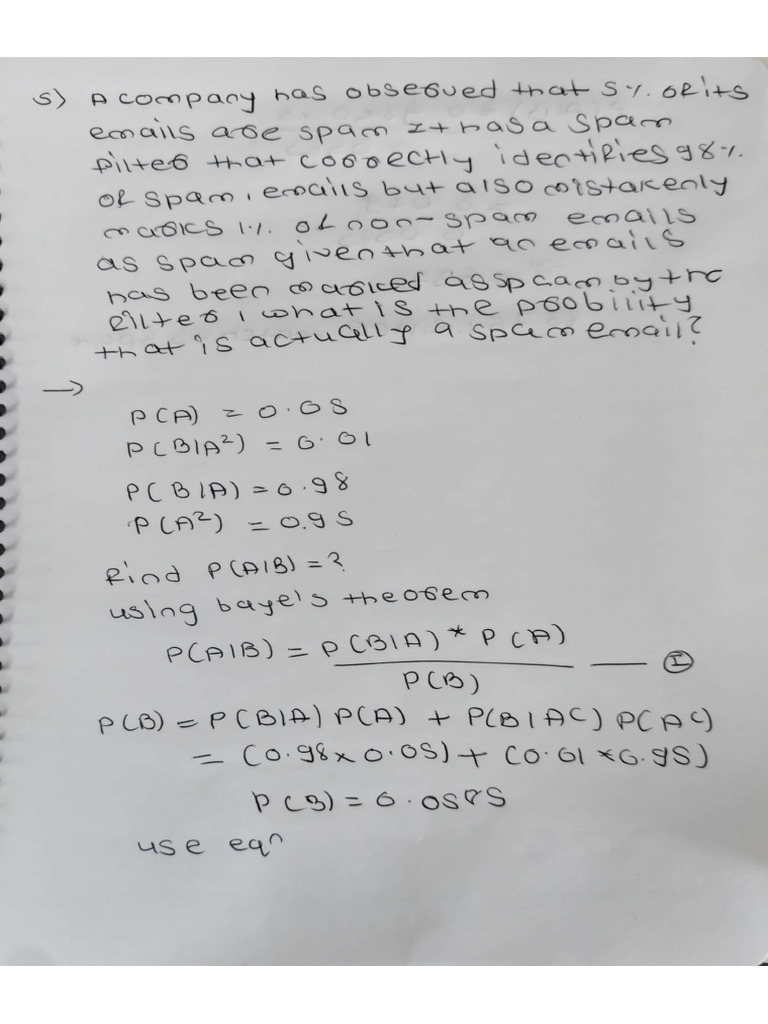 5) A company has observed that 5%. of its
emails are spam It has a spam
filter that correctly identifies 98%.
of spam, emails but also mistakenly
marks 1%. of non-spam emails
as spam given that an emails
has been marked as spcam by the
filter, what is the probility
that is actually a spam email?
→
P(A) = 0.05
P(B|A²) = 0.01
P(B|A) = 0.98
P(A²) = 0.95
Find P(A|B) = ?
using baye's theorem
P(A|B) = P(B|A) * P(A) / P(B) — I
P(B) = P(B|A) P(A) + P(B|AC) P(AC)
= (0.98 x 0.05) + (0.01 * 0.95)
P(B) = 0.0585
use eqn